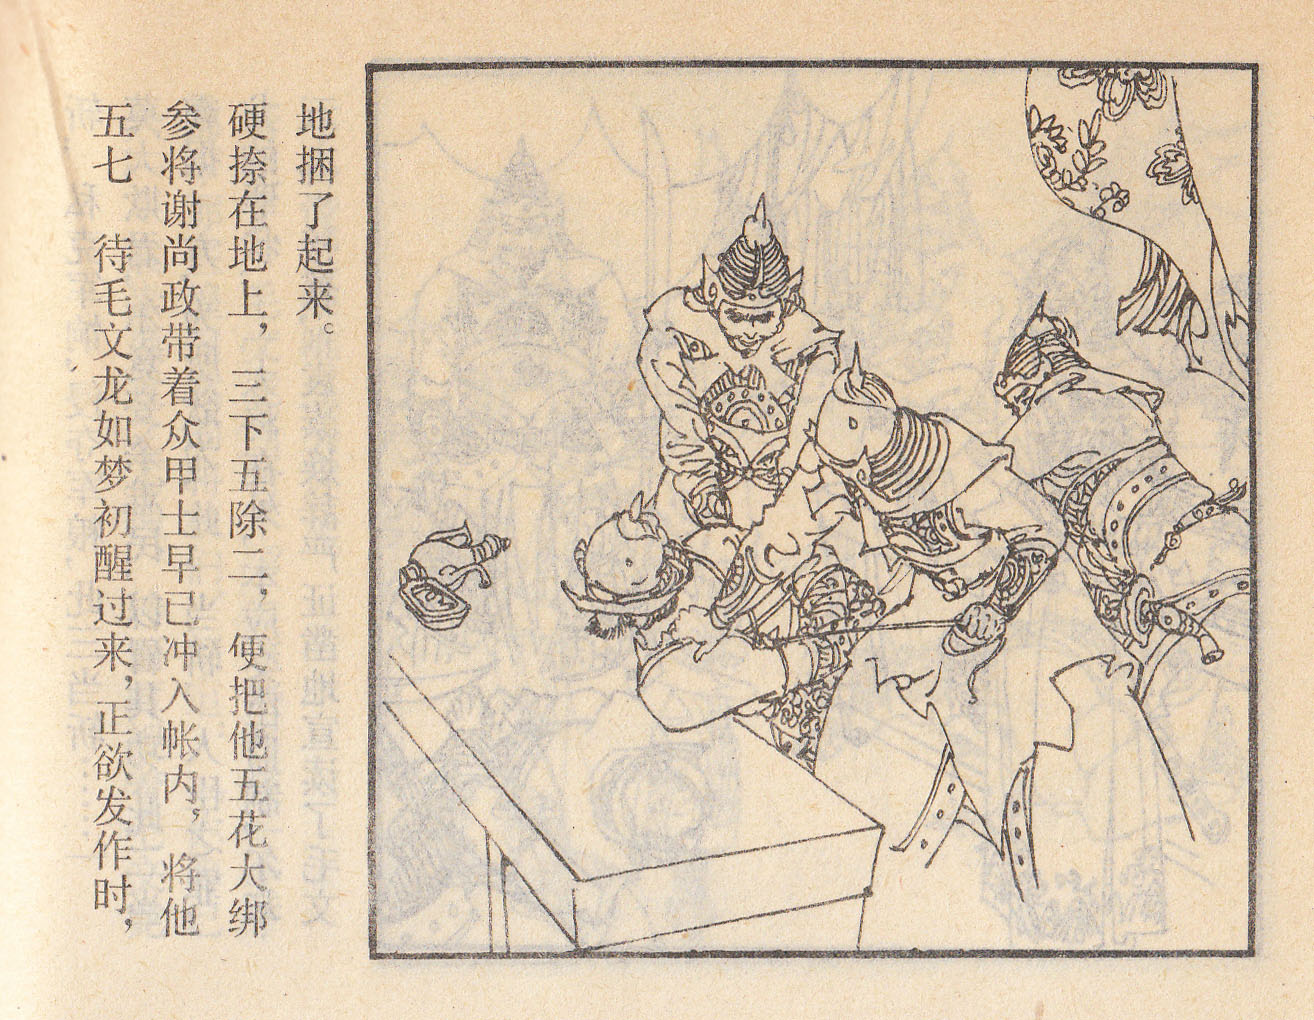 五七　待毛文龙如梦初醒过来，正欲发作时，
参将谢尚政带着众甲士早已冲入帐内，将他
硬捺在地上，三下五除二，便把他五花大绑
地捆了起来。